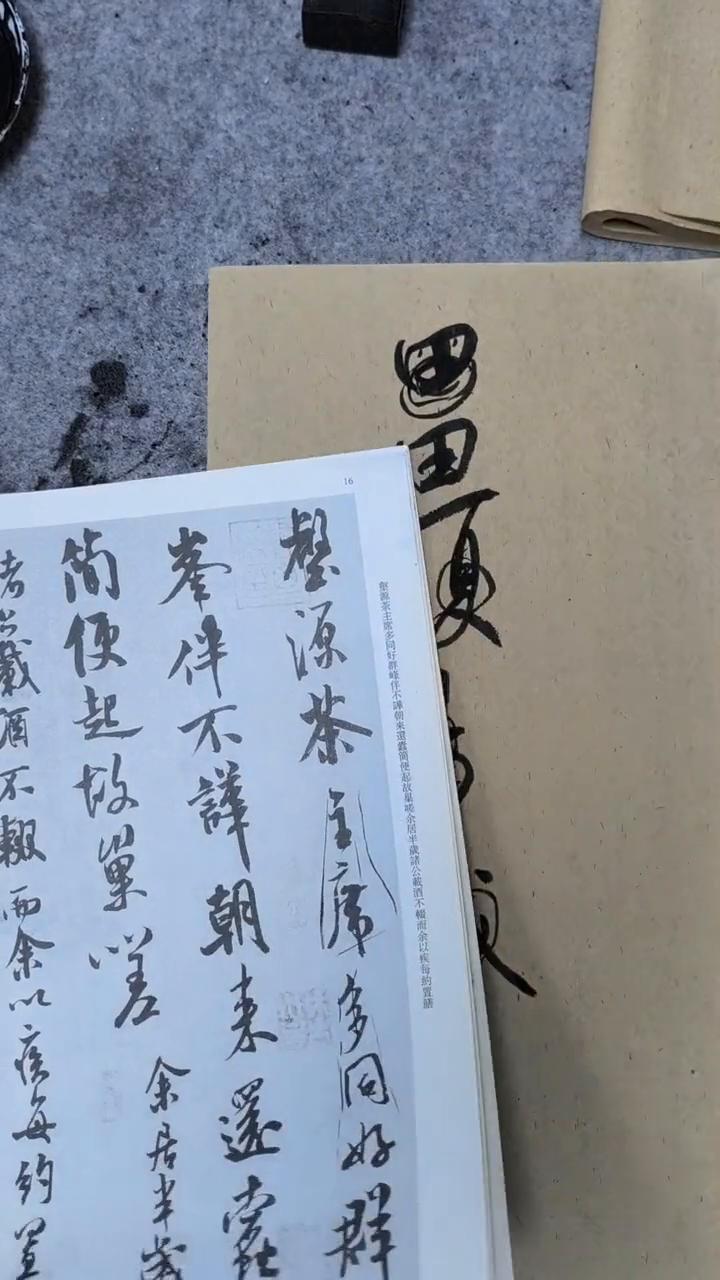 16
壑源茶主席多同好群峰伴不譁朝來還蠹簡便起故巢嗟余居半歲諸公載酒不輟而余以疾每約置膳
壑源茶主席多同好群
峯伴不譁朝來還蠹
簡便起故巢嗟余居半歲
公載酒不輟而余以疾每約置